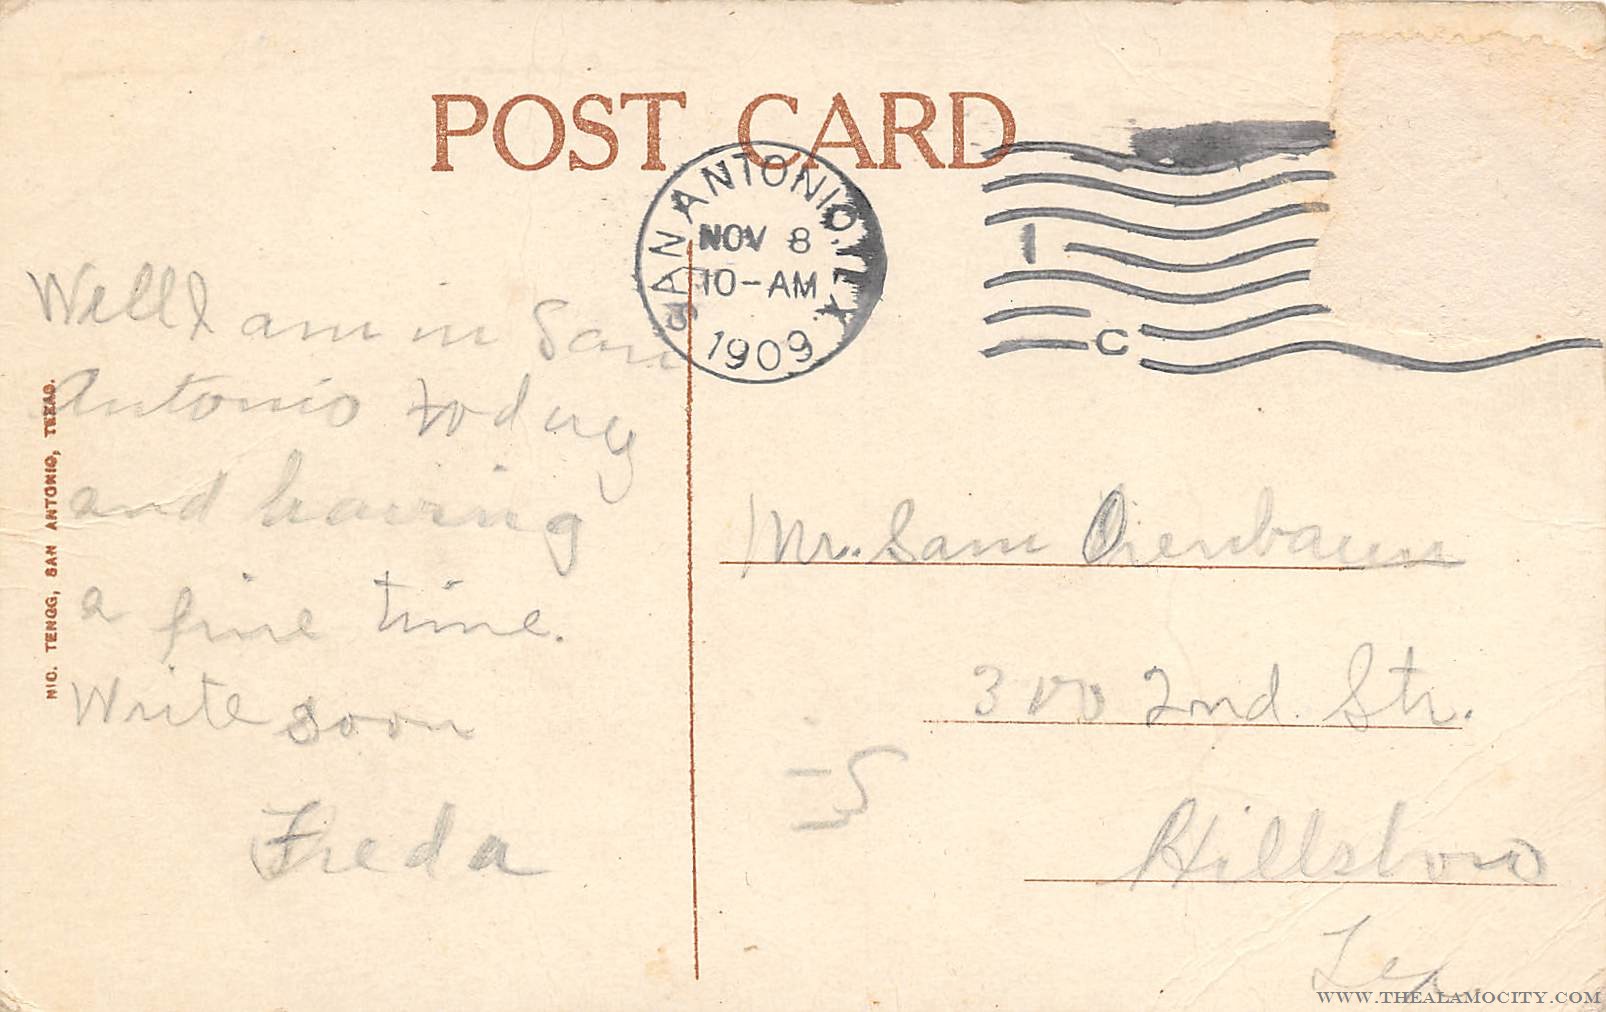 POST CARD
SAN ANTONIO, TEX.
NOV 8
10-AM
1909
1
C
Well I am in San
Antonio today
and having
a fine time.
Write soon
Freda
NIC. TENGG, SAN ANTONIO, TEXAS.
Mr. Sam Orenbaun
300 2nd. Str.
Hillsboro
Tex
WWW.THEALAMOCITY.COM